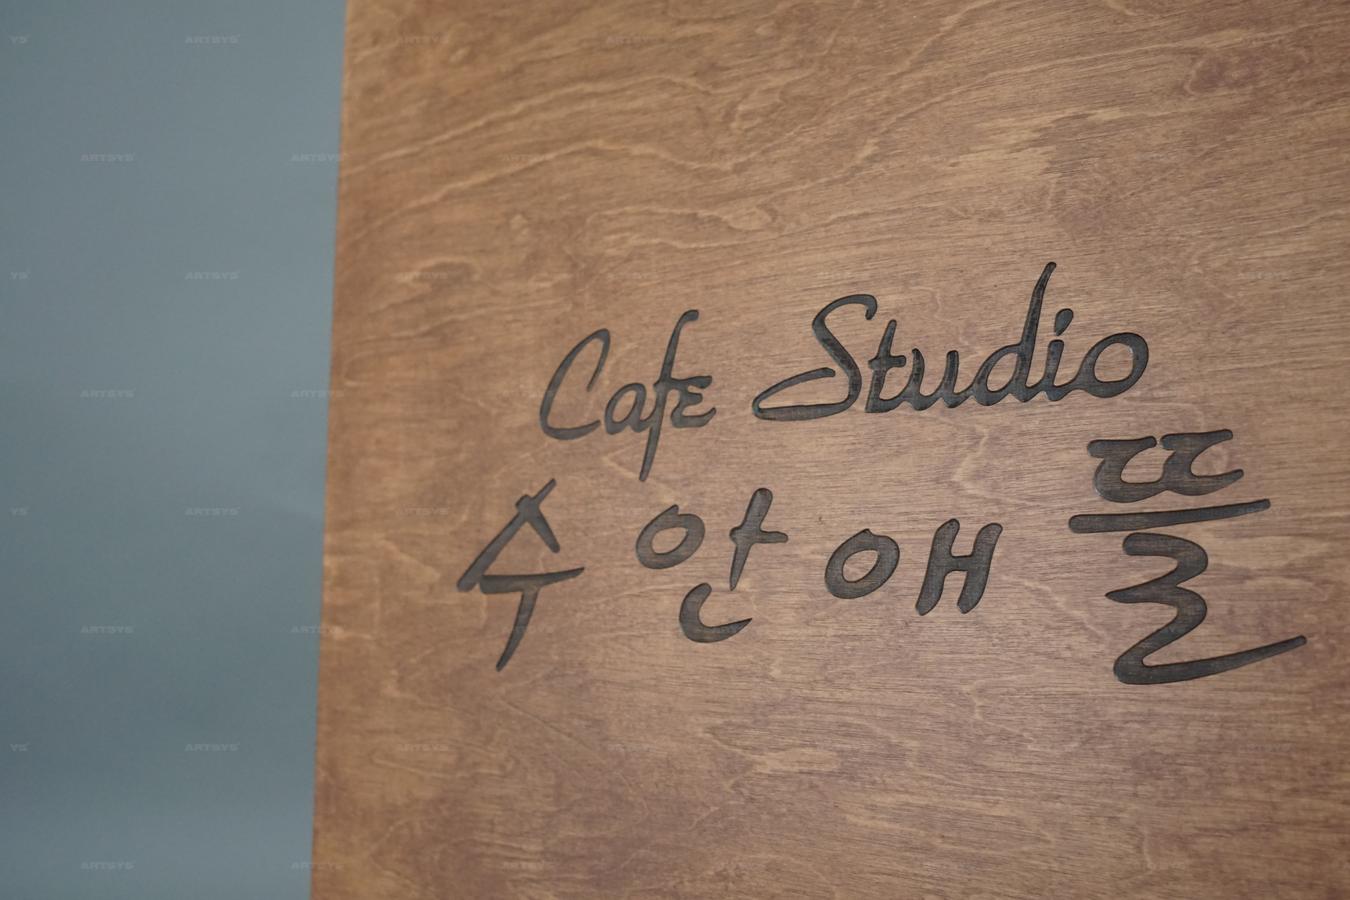 Cafe Studio
수안애뜰